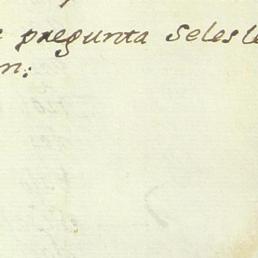 pregunta Seles le
n: